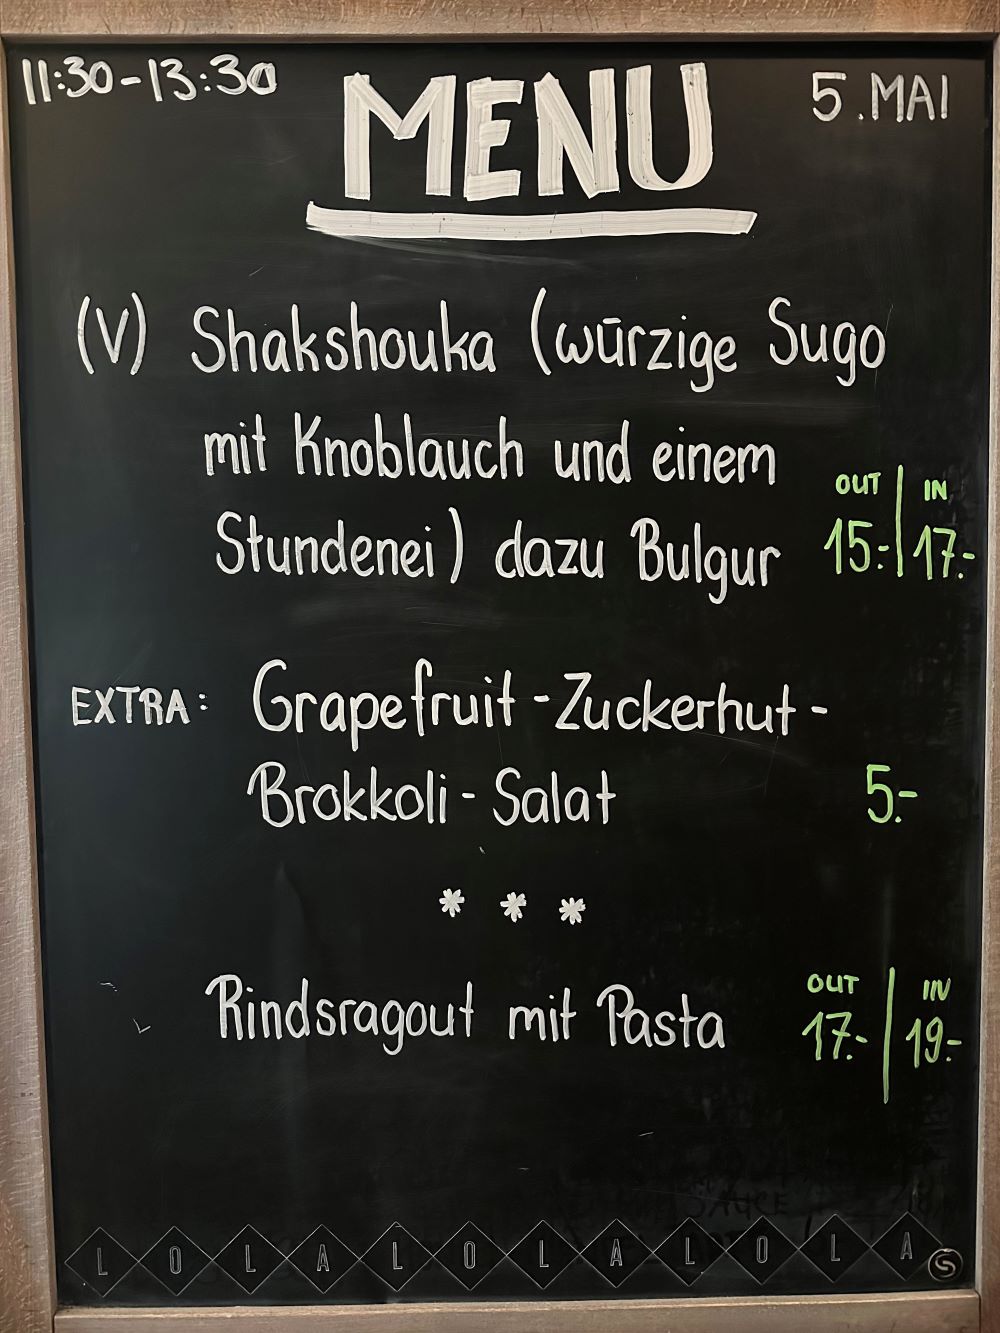 11:30-13:30
MENU
5. MAI
(V) Shakshouka (würzige Sugo
mit Knoblauch und einem
Stundenei) dazu Bulgur
OUT | IN
15.- | 17.-
EXTRA: Grapefruit-Zuckerhut-
Brokkoli-Salat 5.-
* * *
Rindsragout mit Pasta
OUT | IN
17.- | 19.-
SAUCE
LOLA LOLA LOLA
S